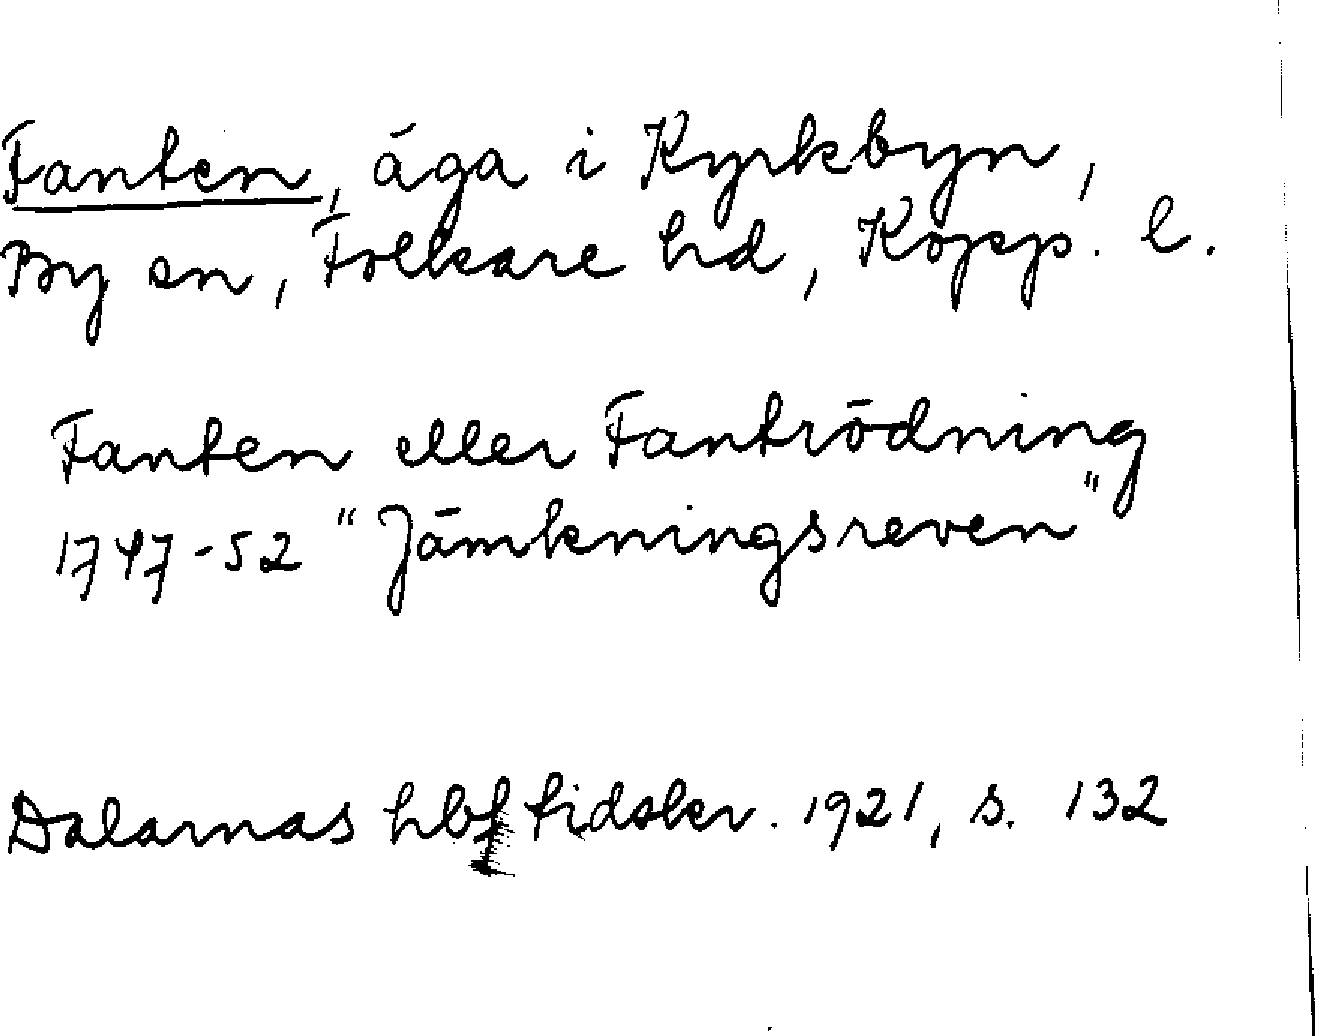 Fanten, äga i Kyrkbyn,
By sn, Folkare hd, Kopp. l.
Fanten eller Fantrödning
1747-52 "Jämkningsreven"
Dalarnas hbf tidskr. 1921, s. 132